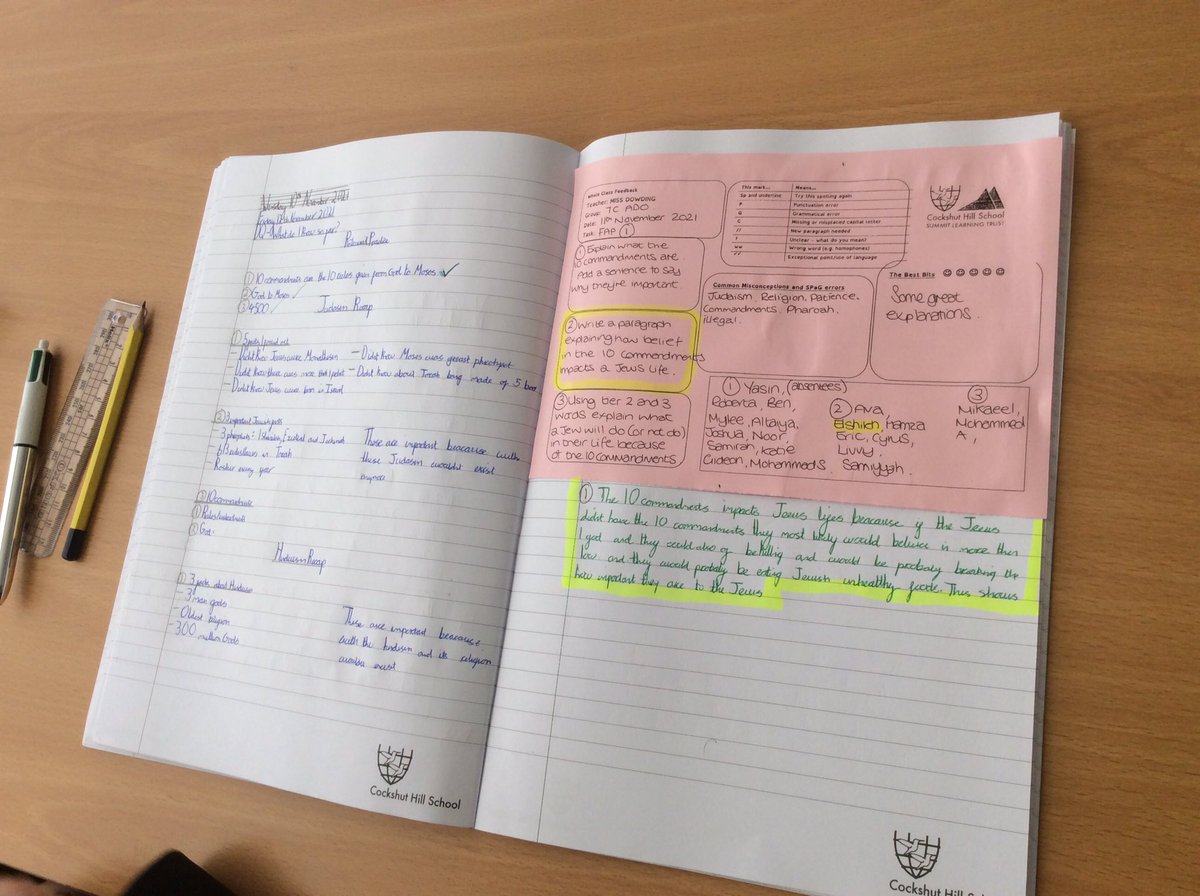 Wednesday 10th November 2021
Friday 12th November 2021
LQ - What do I know so far?
Retrieval Practice
① 10 commandments are the 10 rules given from God to Moses ✓
② God to Moses ✓
③ 4500 ✓
Judaism Recap
① 5 facts/
- Didnt know Jews were Monotheism
- Didnt know there was more than 1 prophet
- Didnt know Jesus was born in Israel
- Didnt know Moses was greatest prophet
- Didnt know about Torah being made of 5 books
② 3 important Jewish facts
3 prophets: 1
613 in Torah
- every year
These are important beacause with
these Judaism wouldnt exist
anymore
③ 10 commandments
①
② God
Hinduism Recap
① 3 facts about Hinduism
- 3 main gods
- Oldest religion
- 300 million Gods
These are important beacause
with the hinduism and its religion
wouldn exist
Cockshut Hill School
Whole Class Feedback
Teacher: MISS DOWDING
Group: 7C ADO
Date: 11th November 2021
Task: FAP ①
① Explain what the
10 commandments are.
Add a sentence to say
why they're important.
② Write a paragraph
explaining how belief
in the 10 commandments
impacts a Jews life.
③ Using tier 2 and 3
words explain what
a Jew will do (or not do)
in their life because
of the 10 commandments
This mark... Means...
Sp and underline Try this spelling again
P Punctuation error
G Grammatical error
C Missing or misplaced capital letter
// New paragraph needed
? Unclear - what do you mean?
ww Wrong word (e.g. homophones)
Exceptional point/use of language
Cockshut Hill School
SUMMIT LEARNING TRUST
Common Misconceptions and SPaG errors
Judaism. Religion. Patience.
Commandments. Pharoah.
illegal.
The Best Bits ☺☺☺☺☺
Some great
explanations.
① Yasin, (absentees)
Roberta, Ren,
Mylee, Altaiya,
Joshua, Noor,
Samirah, Katie
Gideon, Mohammed S.
② Ava,
Elshikh, Hamza
Eric, Cyrus,
Livvy
Samiyyah.
③
Mikaeel,
Mohammed
A,
① The 10 commandments impacts Jews lifes beacause if the Jews
didnt have the 10 commandments they most likely would believe in more then
1 god and they could also of be killing and would be probably breaking the
law and they would probably be eating Jewish unhealthy foods. This shows
how important they are to the Jews
Cockshut Hill School